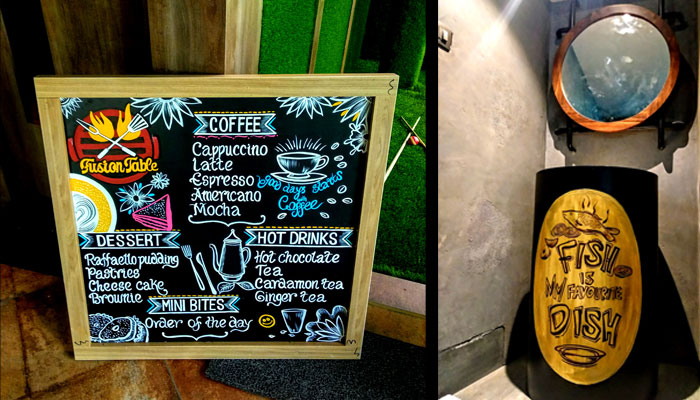 Fusion Table
COFFEE
Cappuccino
Latte
Espresso
Americano
Mocha
Good days starts
with
Coffee
DESSERT
Raffaello pudding
Pastries
Cheese cake
Brownie
HOT DRINKS
Hot chocolate
Tea
Cardamon tea
Ginger tea
MINI BITES
Order of the day
FISH
IS
MY FAVOURITE
DISH